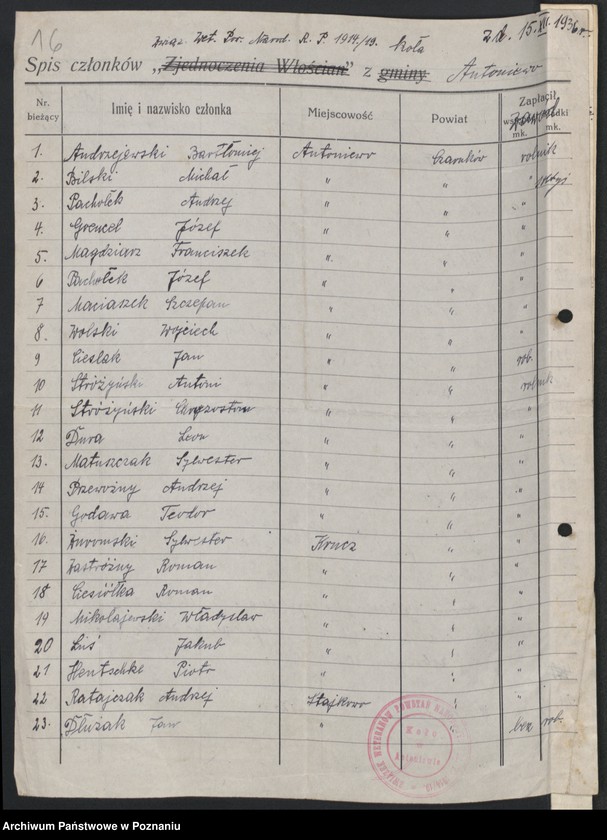 16
Związ. Wet. Pow. Narod. R. P. 1914/19. koła z d. 15.XII.1936 r.
Spis członków „Zjednoczenia Włościan” z gminy Antoniewo
Nr. bieżący Imię i nazwisko członka Miejscowość Powiat Zapłacił
mk. mk.
1. Andrzejewski Bartłomiej Antoniewo Czarnków rolnik
2. Bilski Michał " " "
3. Pachołek Andrzej " " "
4. Grencel Józef " " "
5. Magdziarz Franciszek " " "
6 Pachołek Józef " " "
7 Maciaszek Szczepan " " "
8. Wolski Wojciech " " "
9 Cieslak Jan " " rob.
10 Stróżyński Antoni " " rolnik
11 Stróżyński Chryzostom " " "
12 Dura Leon " " "
13. Matuszczak Sylwester " " "
14 Przewoźny Andrzej " " "
15. Godawa Teodor " " "
16. Żuromski Sylwester Krucz " "
17 Zastróżny Roman " " "
18 Ciesiółka Roman " " "
19 Mikołajewski Władysław " " "
20 Luś Jakub " " "
21 Hentschke Piotr " " "
22 Ratajczak Andrzej Stajkowo " "
23. Dłużak Jan " " bez rob.
ZWIĄZEK WETERANÓW POWSTAŃ
Koło
w Antoniewie
Archiwum Państwowe w Poznaniu